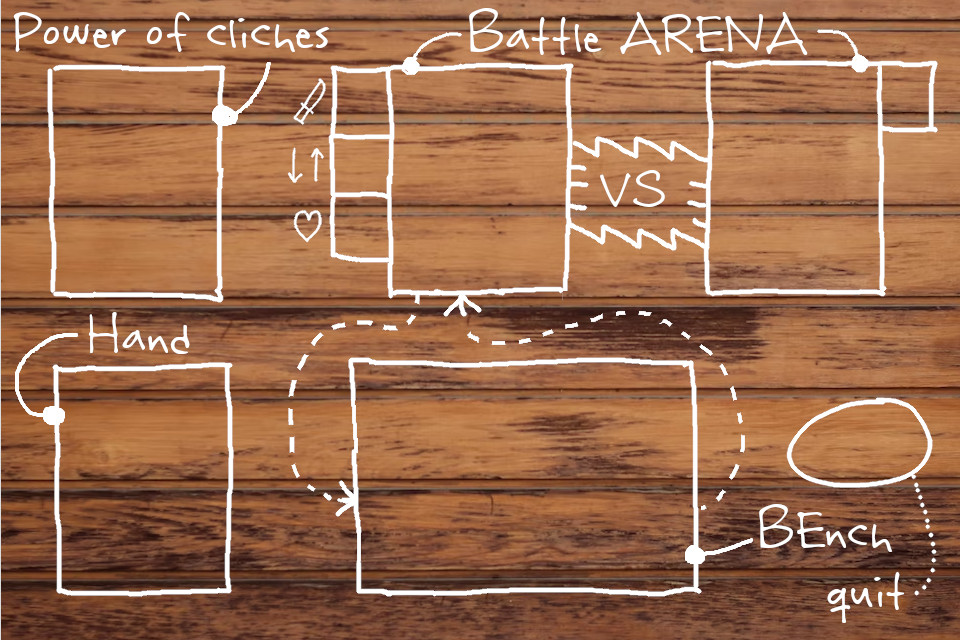 Power of cliches
Battle ARENA
VS
Hand
BEnch
quit